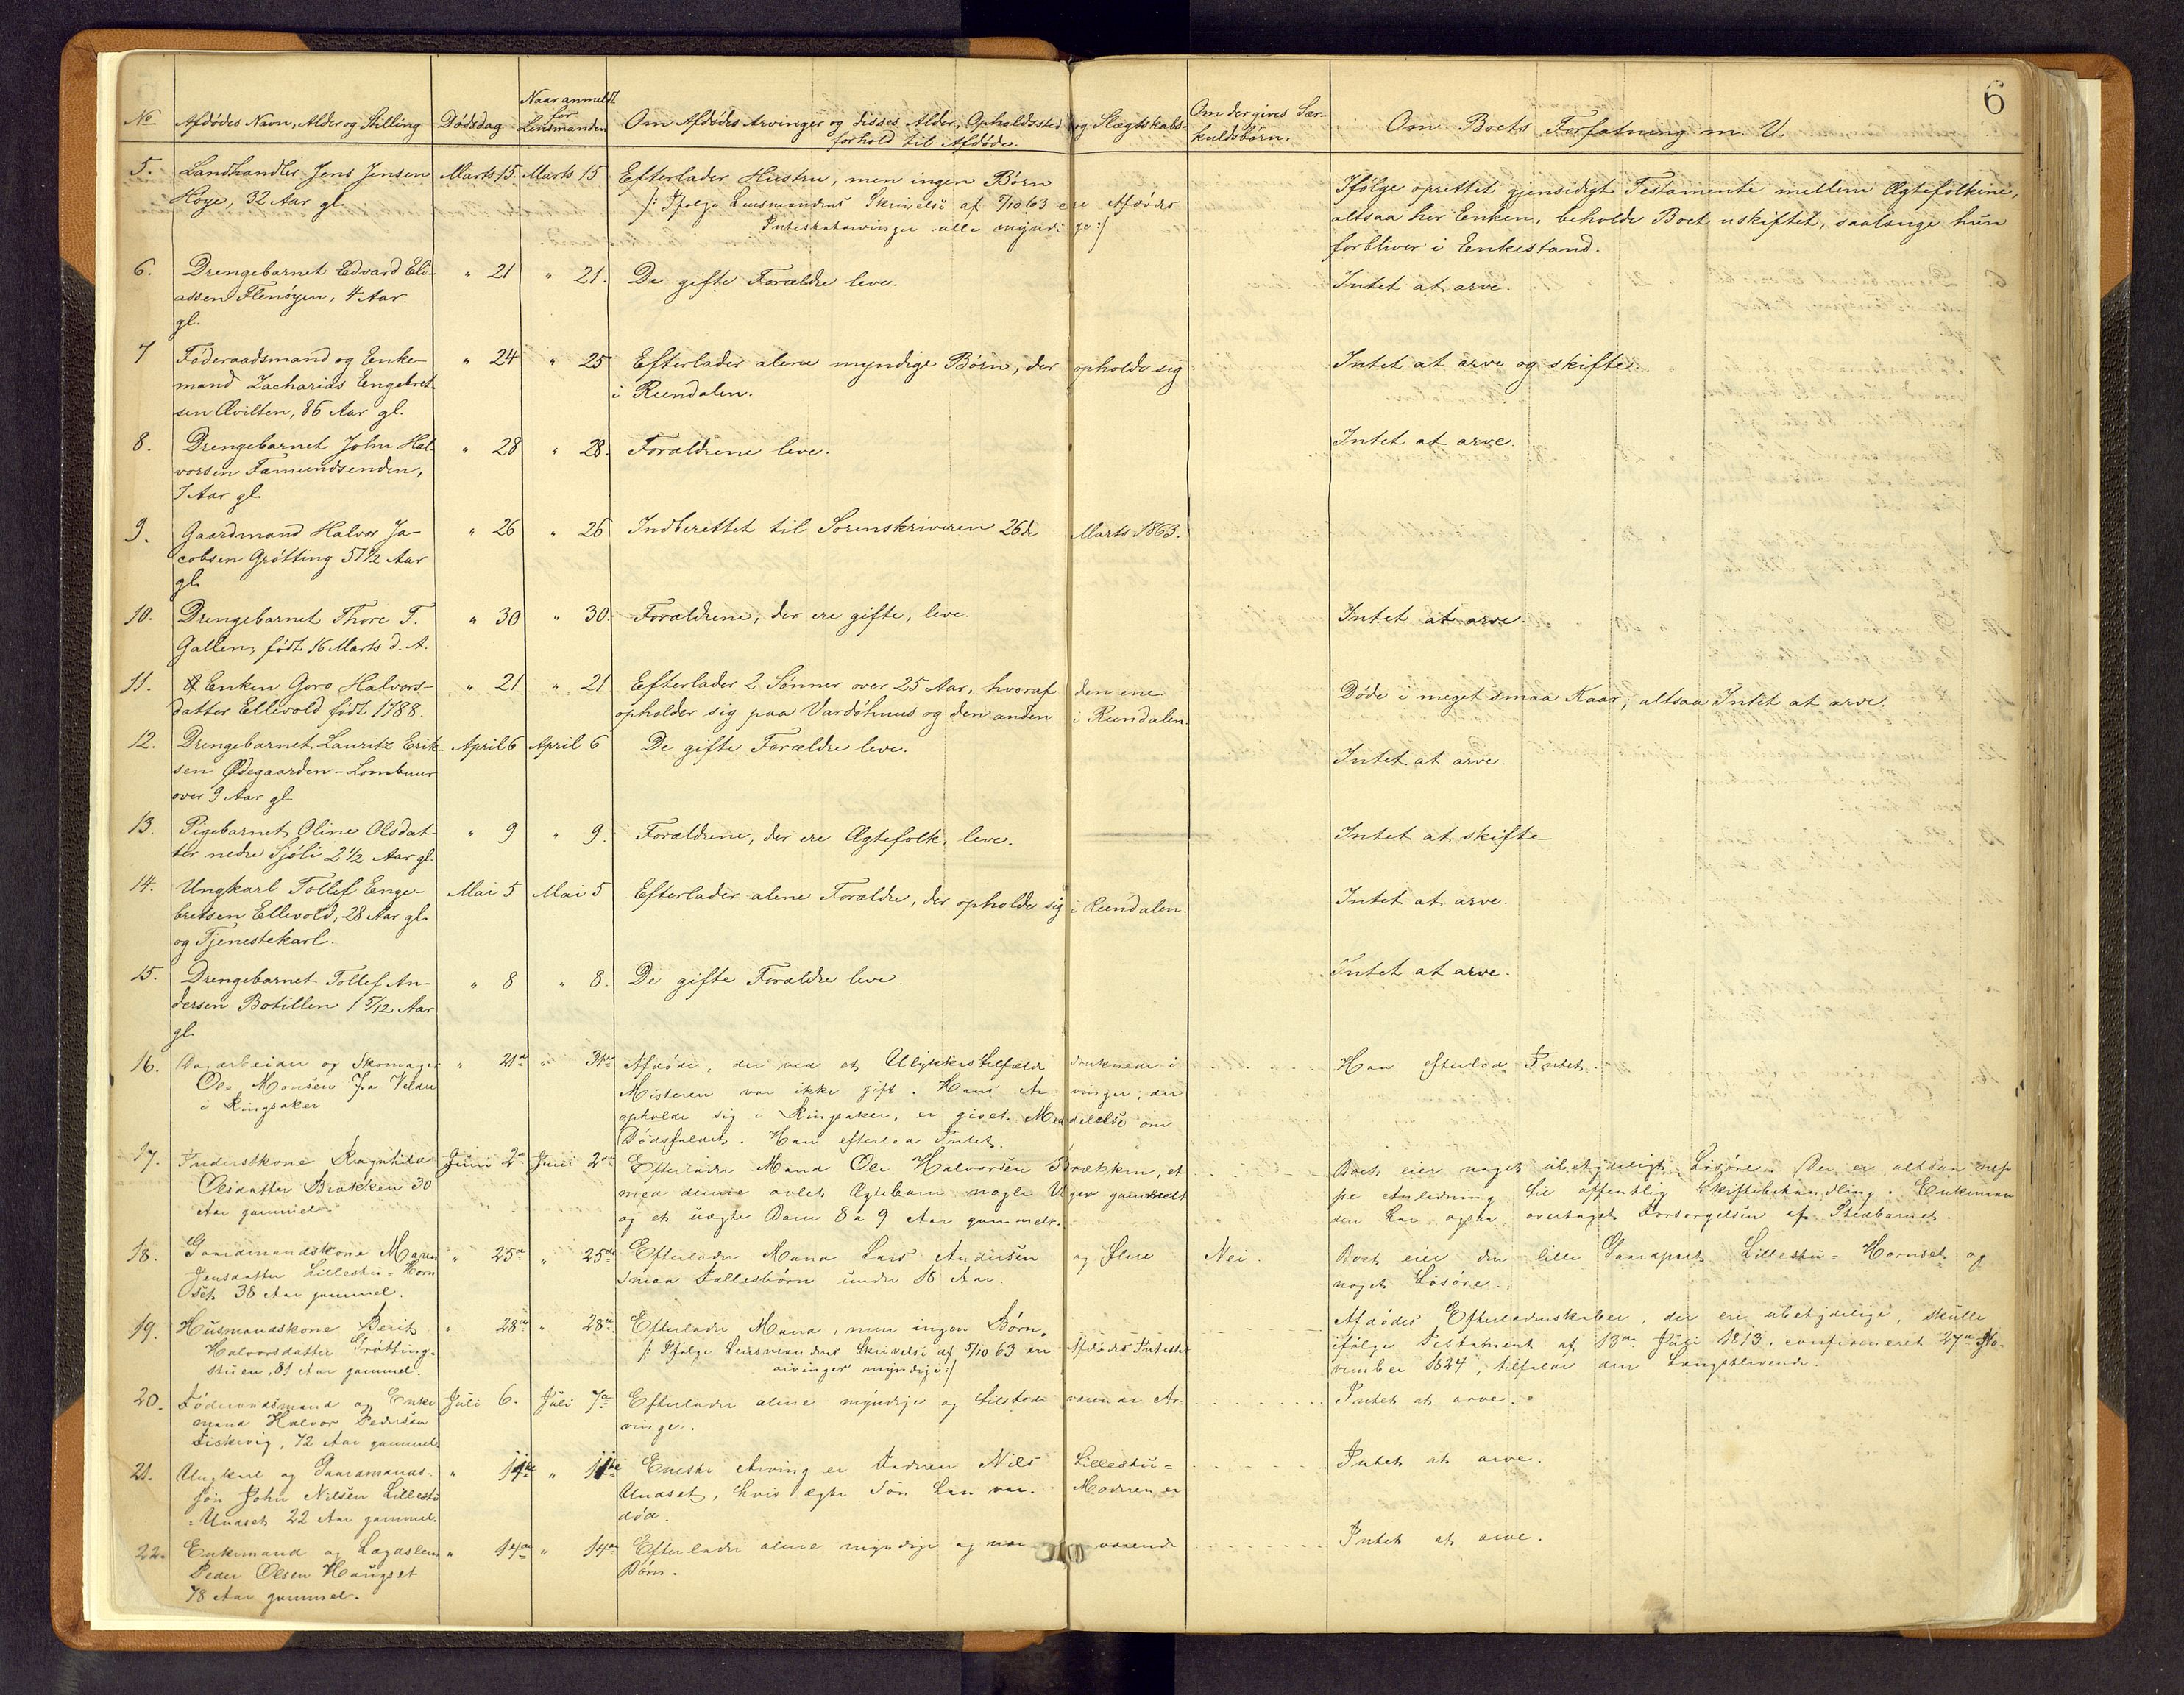 6
No
Afdödes Navn, Alder og Stilling
Dödsdag
Naar anmeldt
for
Lensmanden
Om Afdödes Arvinger og disses Alder, Opholdssted og Slægtskabs-
forhold til Afdöde.
Om der gives Sær-
kuldsbörn.
Om Boets Forfatning m. V.
5. Landhandler Jens Jensen Marts 15. Marts 15 Efterlader Hustru, men ingen Börn Ifölge oprettet gjensidigt Testamente mellem Ægtefolkene,
Hoye, 32 Aar gl. /: Ifölge Lensmandens Skrivelse af 5/10 63 ere Afdödes altsaa her Enken, beholde Boet uskiftet, saalænge hun
Intestatarvinger alle myndige :/ forbliver i Enkestand.
6. Drengebarnet Edvard Eli- " 21 " 21. De gifte Forældre leve. Intet at arve.
assen Flenöyen, 4 Aar
gl.
7 Föderaadsmand og Enke- " 24 " 25 Efterlader alene myndige Börn, der opholde sig Intet at arve og skifte.
mand Zacharias Engebret- i Rendalen.
sen Qvilten, 86 Aar gl.
8. Drengebarnet John Hal- " 28 " 28. Forældrene leve. Intet at arve.
vorsen Fæmundsenden,
7 Aar gl.
9. Gaardmand Halvor Ja- " 26 " 26 Indberettet til Sorenskriveren 26de Marts 1863.
cobsen Grötting 57 1/2 Aar
gl.
10. Drengebarnet Thore T. " 30 " 30. Forældrene, der ere gifte, leve. Intet at arve.
Gallen, födt 16 Marts d. A.
11. Enken Goro Halvors- " 21 " 21 Efterlader 2 Sönner over 25 Aar, hvoraf den ene Döde i meget smaa Kaar; altsaa Intet at arve.
datter Ellevold födt 1788. opholder sig paa Vardöhuus og den anden i Rendalen.
12. Drengebarnet Lauritz Erik- April 6 April 6 De gifte Forældre leve. Intet at arve.
sen Ødegaarden-Lombnæs
over 9 Aar gl.
13. Pigebarnet Oline Olsdat- " 9 " 9. Forældrene, der ere Ægtefolk, leve. Intet at skifte
ter nedre Sjöli 2 1/2 Aar gl.
14. Ungkarl Tollef Enge- Mai 5 Mai 5 Efterlader alene Forældre, der opholde sig i Rendalen. Intet at arve.
bretsen Ellevold, 28 Aar gl.
og Tjenestekarl.
15. Drengebarnet Tollef An- " 8 " 8. De gifte Forældre leve. Intet at arve.
dersen Botillen 1 5/12 Aar
gl.
16. Dagarbeider og Skomager " 21de " 31te Afdöde, der ved et Ulykkestilfælde druknede i Han efterlod Intet.
Ole Monsen fra Veldre Misteren var ikke gift. Hans Arvinger, der
i Ringsaker opholde sig i Ringsaker, er givet Meddelelse om
Dödsfaldet. Han efterlod Intet.
17. Inderstkone Ragnhild Juni 2de Juni 2de Efterlader Mand Ole Halvorsen Brækken, et Boet eier noget ubetydeligt Lösöre. Der er altsaa nep-
Olsdatter Brækken 30 med denne avlet Ægtebarn nogle Uger gammelt pe Anledning til offentlig Skiftebehandling. Enkeman-
Aar gammel. og et uægte Barn 8 a 9 Aar gammelt. den har ogsaa overtaget Forsörgelsen af Stedbarnet.
18. Gaardmandskone Maren " 25de " 25de Efterlader Mand Lars Andersen og flere Nei. Boet eier den lille Gaardpart Lillestu-Hornset og
Jensdatter Lillestu-Horn- smaa Fællesbörn under 16 Aar. noget Lösöre.
set 38 Aar gammel.
19. Husmandskone Berit " 28de " 28de Efterlader Mand, men ingen Börn. Afdödes Efterladenskaber, der ere ubetydelige, skulle
Halvorsdatter Grötting- /: Ifölge Lensmandens Skrivelse af 5/10 63 ere Afdödes Intestat- ifölge Testament af 13de Juli 1813, confirmeret 27de No-
stuen, 81 Aar gammel. arvinger myndige :/ vember 1824, tilfalde den Længstlevende.
20. Föderaadsmand og Enke- Juli 6. Juli 7de Efterlader alene myndige og tilstedeværende Ar- Intet at arve.
mand Halvor Pedersen vinger.
Fiskevig, 72 Aar gammel.
21. Ungkarl og Gaardmands- " 11te " 11te Eneste Arving er Faderen Nils Lillestu- Intet at arve.
sön John Nilsen Lillestu Undset, hvis ægte Sön han var. Moderen er
-Undset 22 Aar gammel. död.
22. Enkemand og Lægdslem " 14de " 14de Efterlader alene myndige og værende Intet at arve.
Peder Olsen Haugset Börn.
78 Aar gammel.